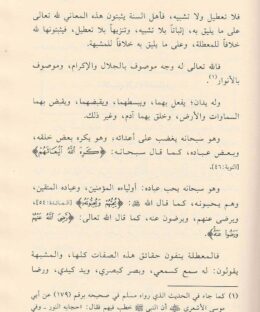 فلا تعطيل ولا تشبيه، فأهل السنة يثبتون هذه المعاني لله تعالى
على ما يليق به، إثباتاً بلا تشبيه، وتنزيهاً بلا تعطيل، فيثبتونها لله
خلافاً للمعطلة، وعلى ما يليق به خلافاً للمشبهة.
فالله تعالى له وجه موصوف بالجلال والإكرام، وموصوف
بالأنوار(١).
وله يدان؛ يفعل بهما، ويبسطهما، ويقبضهما، ويقبض بهما
السماوات والأرض، وخلق بهما آدم، وغير ذلك.
وهو سبحانه يغضب على أعدائه، وهو يكره بعض خلقه،
وبعض عباده، كما قال سبحانه: ﴿كَرِهَ اللَّهُ انبِعَاثَهُمْ﴾
[التوبة: ٤٦].
وهو سبحانه يحب عباده: أولياءه المؤمنين، وعباده المتقين،
وهم يحبونه، كما قال الله ﷻ: ﴿يُحِبُّهُمْ وَيُحِبُّونَهُ﴾ [المائدة: ٥٤]،
ويرضى عنهم، ويرضون عنه، كما قال الله تعالى: ﴿رَّضِيَ اللَّهُ عَنْهُمْ
وَرَضُوا عَنْهُ﴾.
فالمعطلة ينفون حقائق هذه الصفات كلها، والمشبهة
يقولون: له سمع كسمعي، وبصر كبصري، ويد كيدي، ورضا
(١) كما جاء في الحديث الذي رواه مسلم في صحيحه برقم (١٧٩) عن أبي
موسى الأشعري أن النبي ﷺ خطب فيهم فقال: احجابه النور - وفي